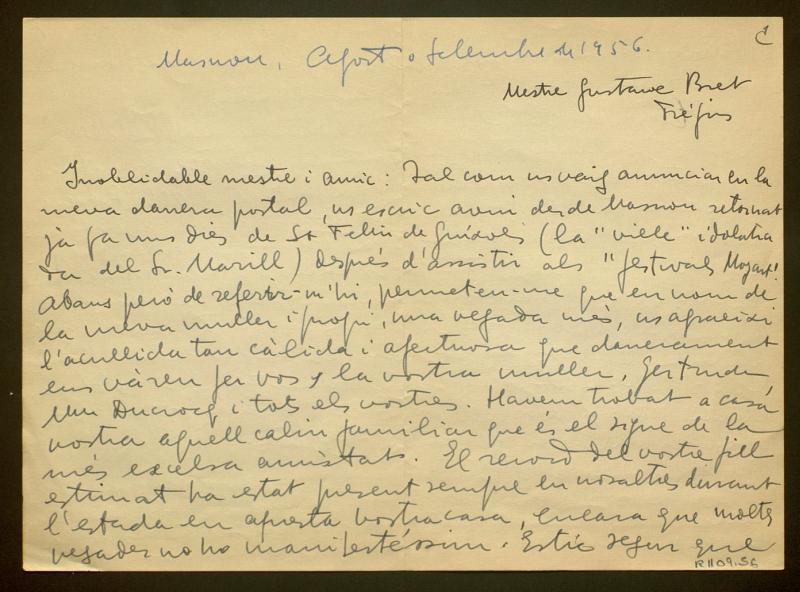 Masnou, Agost o Setembre de 1956.
Mestre Gustave Bret
Fréjus
Inoblidable mestre i amic: Tal com us vaig anunciar en la
meva darrera postal, us escric avui des de Masnou retornat
ja fa uns dies de St Feliu de Guíxols (la "ville" idolatra
da del Sr. Marill) després d'assistir als "festivals Mozart".
Abans però de referir-m'hi, permeten-me que en nom de
la meva muller i propi, una vegada més, us agraeixi
l'acullida tan càlida i afectuosa que darrerament
ens vàren fer vos y la vostra muller, Gertrude
Ducrocq i tots els vostres. Havem trobat a casa
vostra aquell caliu familiar que és el signe de la
més excelsa amistat. El record del vostre fill
estimat ha estat present sempre en nosaltres durant
l'estada en aquesta vostra casa, encara que moltes
vegades no ho manifestéssim. Estic segur que
R1109.56